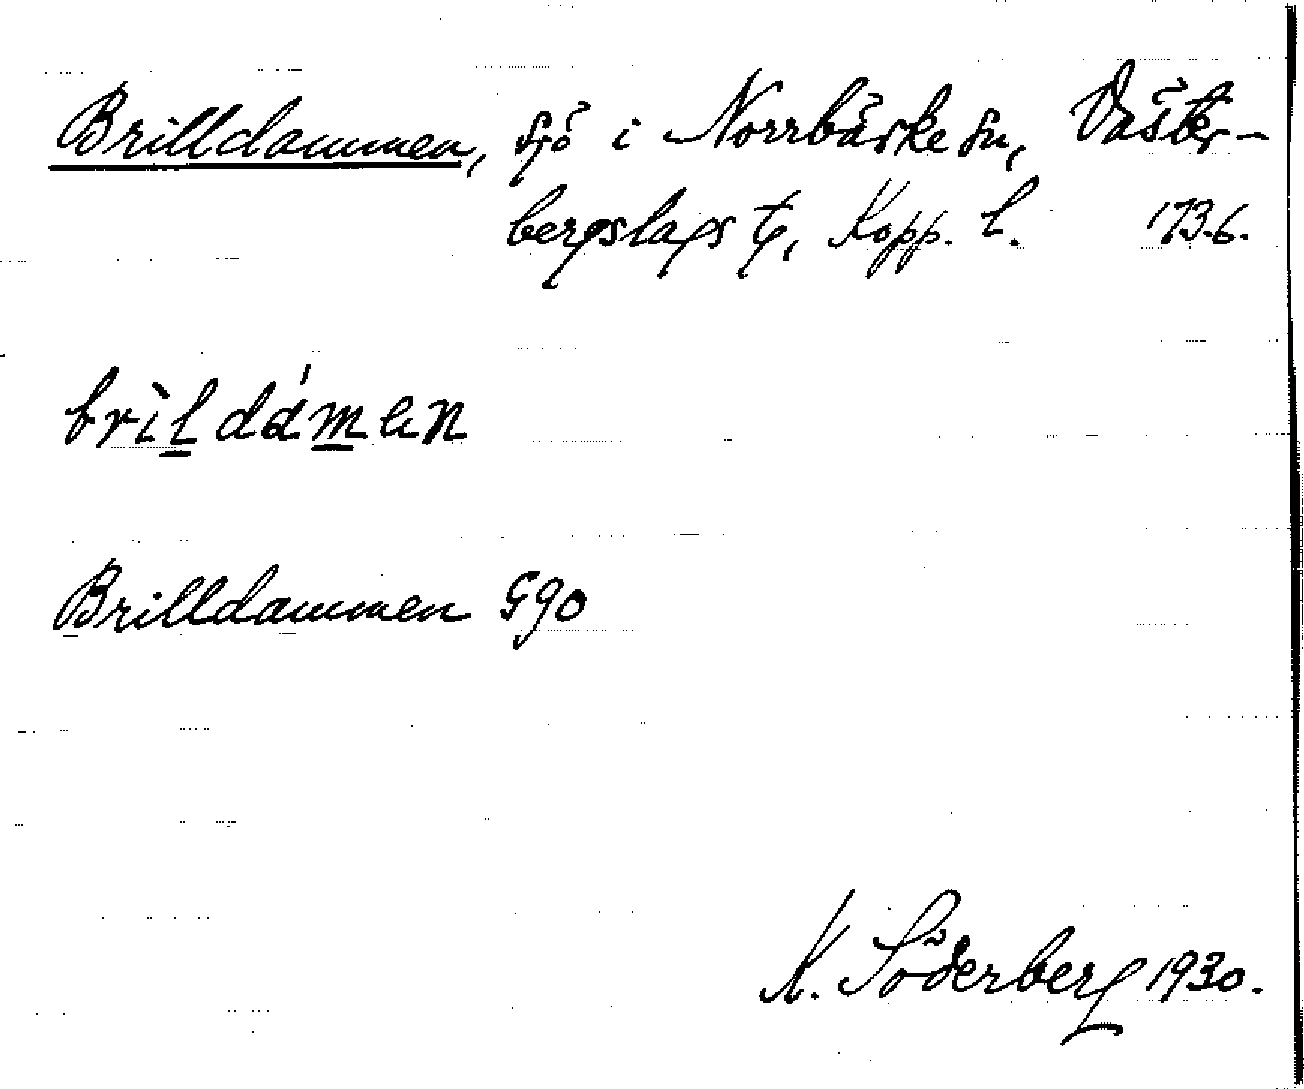 Brilldammen, sjö i Norrbärke sn, Väster-
bergslags tg, Kopp. l. 173.6.
brìldámən
Brilldammen G90
K. Söderberg 1930.